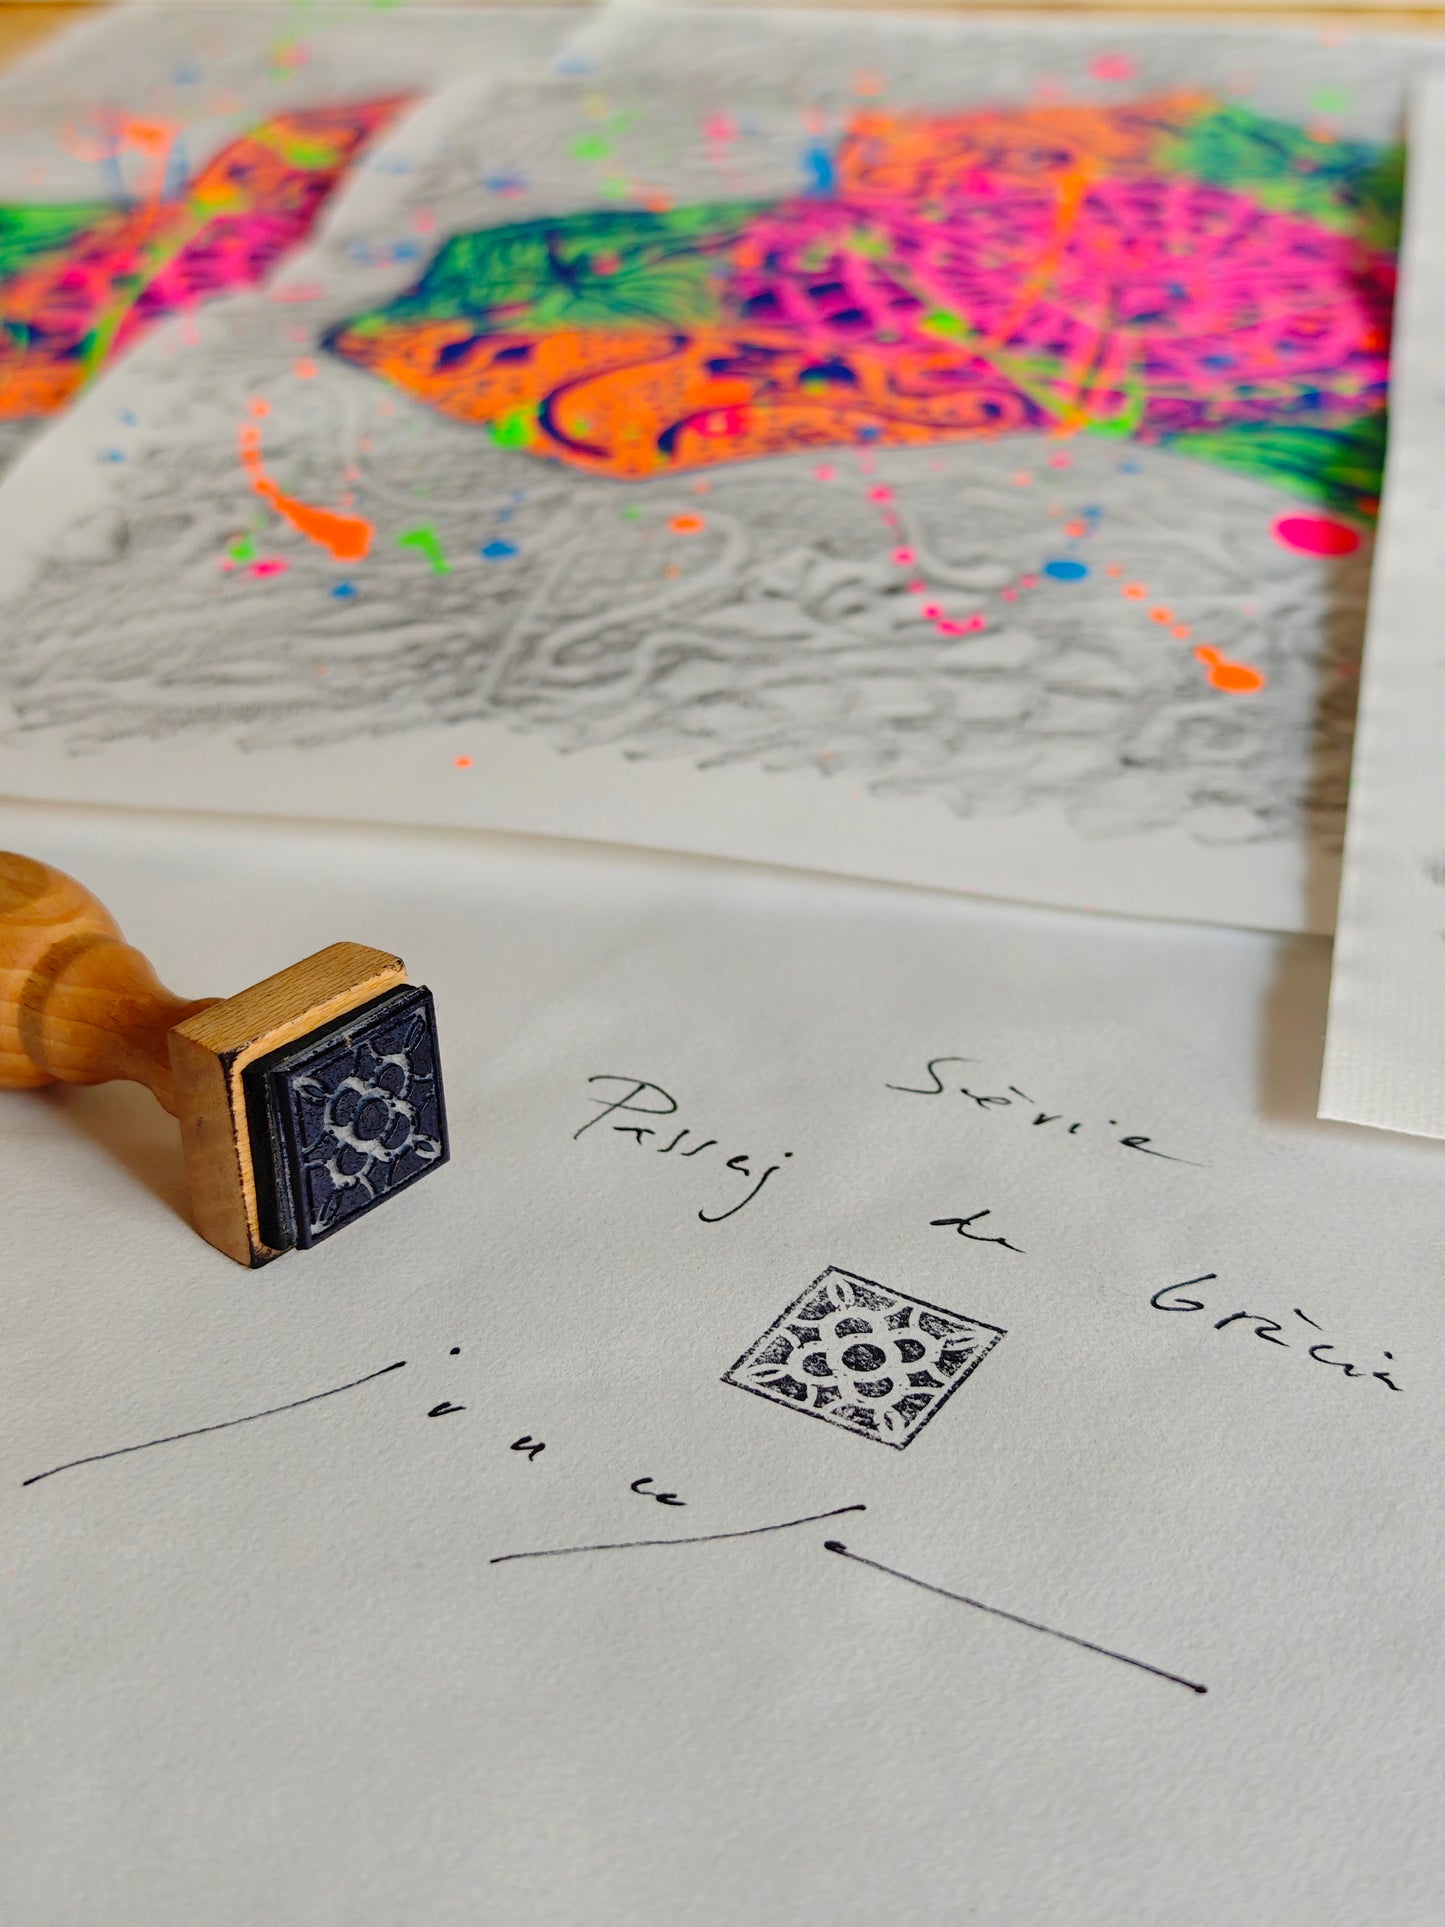 Sèrie
Passeig de Gràcia